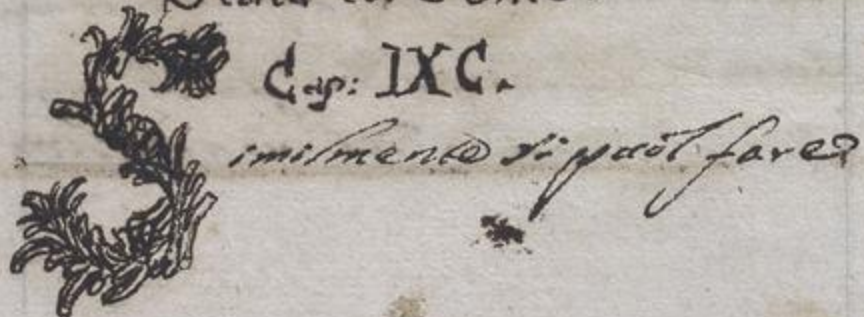 Cap: IXC.
Similmente si puol fare